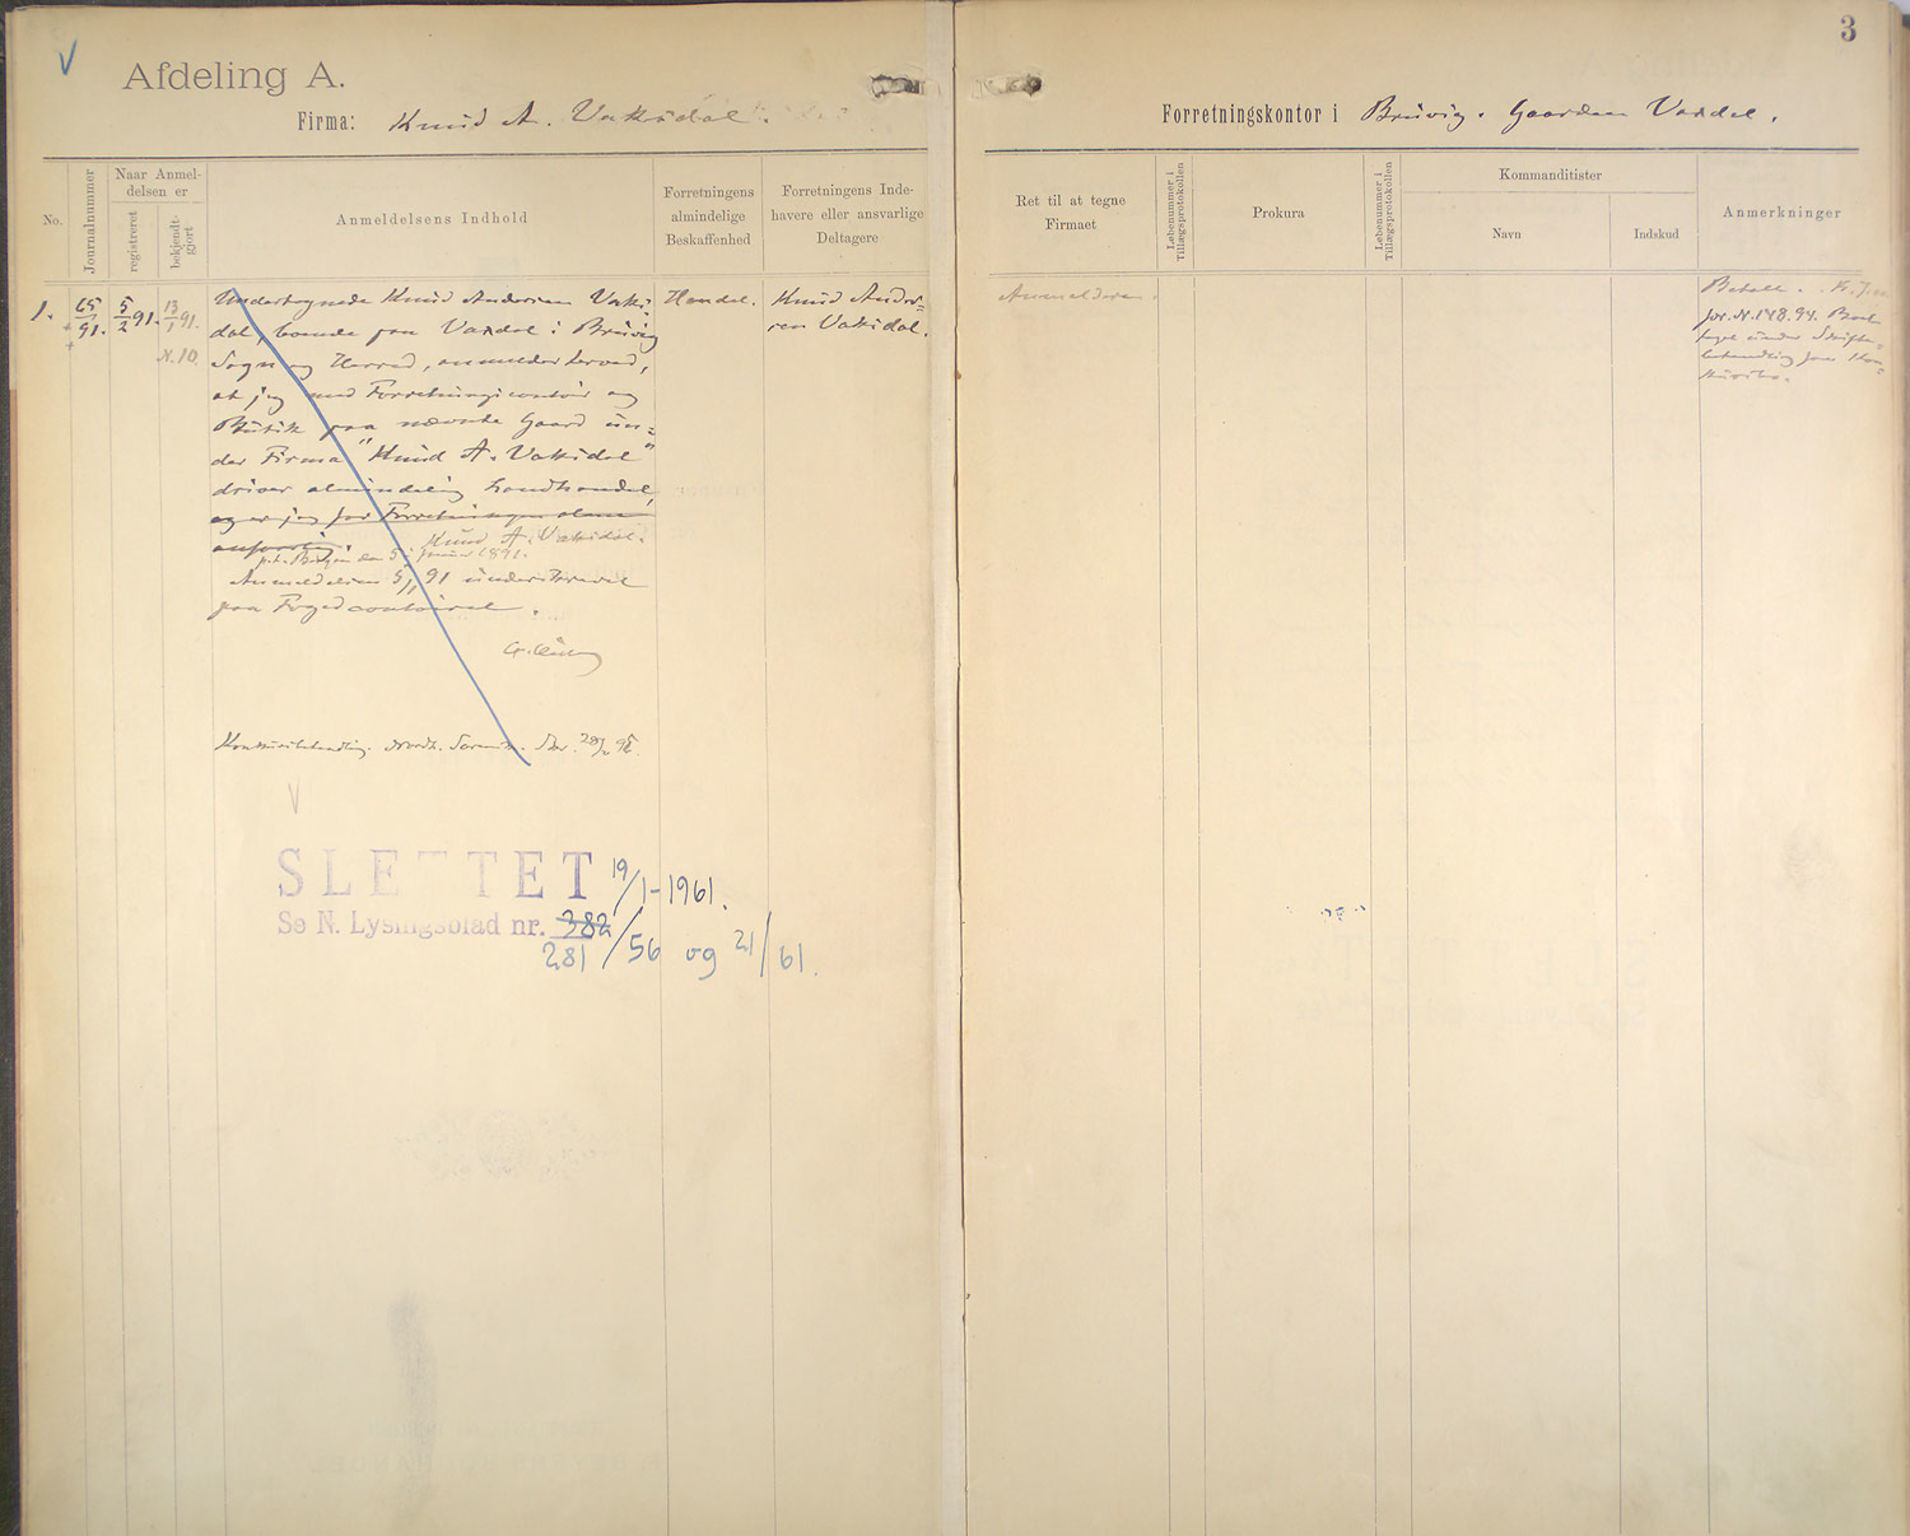 3
Afdeling A.
Firma: Knud A. Vaksdal.
Forretningskontor i Bruvig. Gaarden Vaxdal.
No.
Journalnummer
Naar Anmel-
delsen er
registreret
bekjendt-
gjort
Anmeldelsens Indhold
Forretningens
almindelige
Beskaffenhed
Forretningens Inde-
havere eller ansvarlige
Deltagere
Ret til at tegne
Firmaet
Løbenummer i
Tillægsprotokollen
Prokura
Løbenummer i
Tillægsprotokollen
Kommanditister
Navn
Indskud
Anmerkninger
1.
65/91.
5/2 91.
13/1 91.
N. 10.
Undertegnede Knud Andersen Vaks-
dal, boende paa Vaxdal i Bruvig
Sogn og Herred, anmelder herved,
at jeg med Forretningscontoir og
Butik paa nævnte Gaard un-
der Firma "Knud A. Vaksdal"
driver almindelig Landhandel,
og er jeg for Forretningen alene
ansvarlig.
Knud A. Vaksdal.
p.t. Bergen den 5 Januar 1891.
Anmeldelsen 5/1 91 underskrevet
paa Fogedcontoiret.
Konkursbehandling.
Handel.
Knud Ander-
sen Vaksdal.
Anmelderen.
Jor. N. 148.94. Bort-
taget under Skifte-
behandling som Kon-
kursbo.
SLETTET 19/1-1961.
Se N. Lysingsblad nr. 382
281/56 og 21/61.